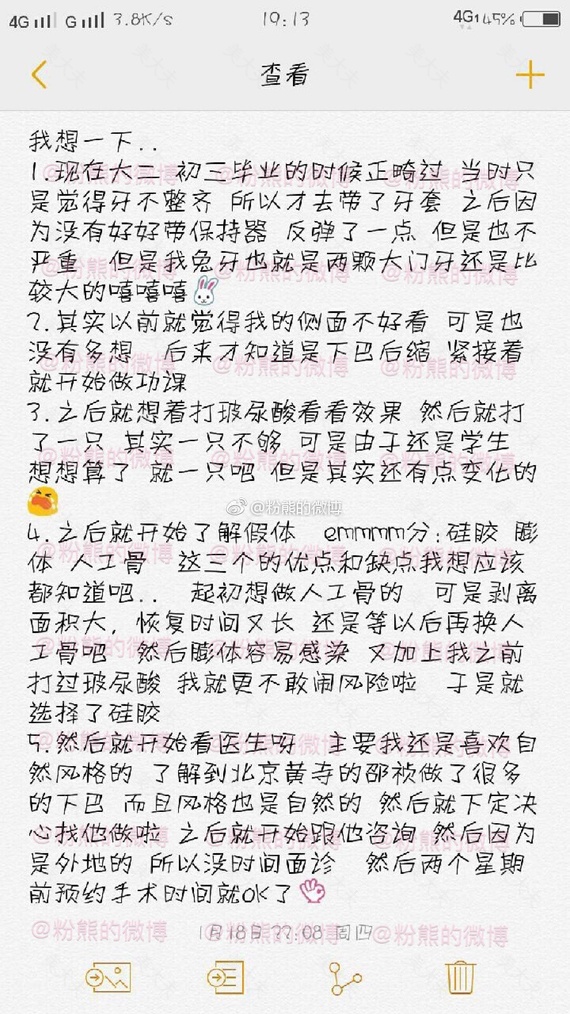 4G G 3.8K/s 19:13 4G 45%
查看
我想一下..
1.现在大二 初三毕业的时候正畸过 当时只
是觉得牙不整齐 所以才去带了牙套 之后因
为没有好好带保持器 反弹了一点 但是也不
严重 但是我兔牙也就是两颗大门牙还是比
较大的嘻嘻嘻🐰
2.其实以前就觉得我的侧面不好看 可是也
没有多想 后来才知道是下巴后缩 紧接着
就开始做功课
3.之后就想着打玻尿酸看看效果 然后就打
了一只 其实一只不够 可是由于还是学生
想想算了 就一只吧 但是其实还有点变化的
😭
@粉熊的微博
4.之后就开始了解假体 emmmm分:硅胶 膨
体 人工骨 这三个的优点和缺点我想应该
都知道吧.. 起初想做人工骨的 可是剥离
面积大, 恢复时间又长 还是等以后再换人
工骨吧 然后膨体容易感染 又加上我之前
打过玻尿酸 我就更不敢闹风险啦 于是就
选择了硅胶
5.然后就开始看医生呀 主要我还是喜欢自
然风格的 了解到北京黄寺的邵祯做了很多
的下巴 而且风格也是自然的 然后就下定决
心找他做啦 之后就开始跟他咨询 然后因为
是外地的 所以没时间面诊 然后两个星期
前预约手术时间就OK了👌
1月18日 22:08 周四
@粉熊的微博